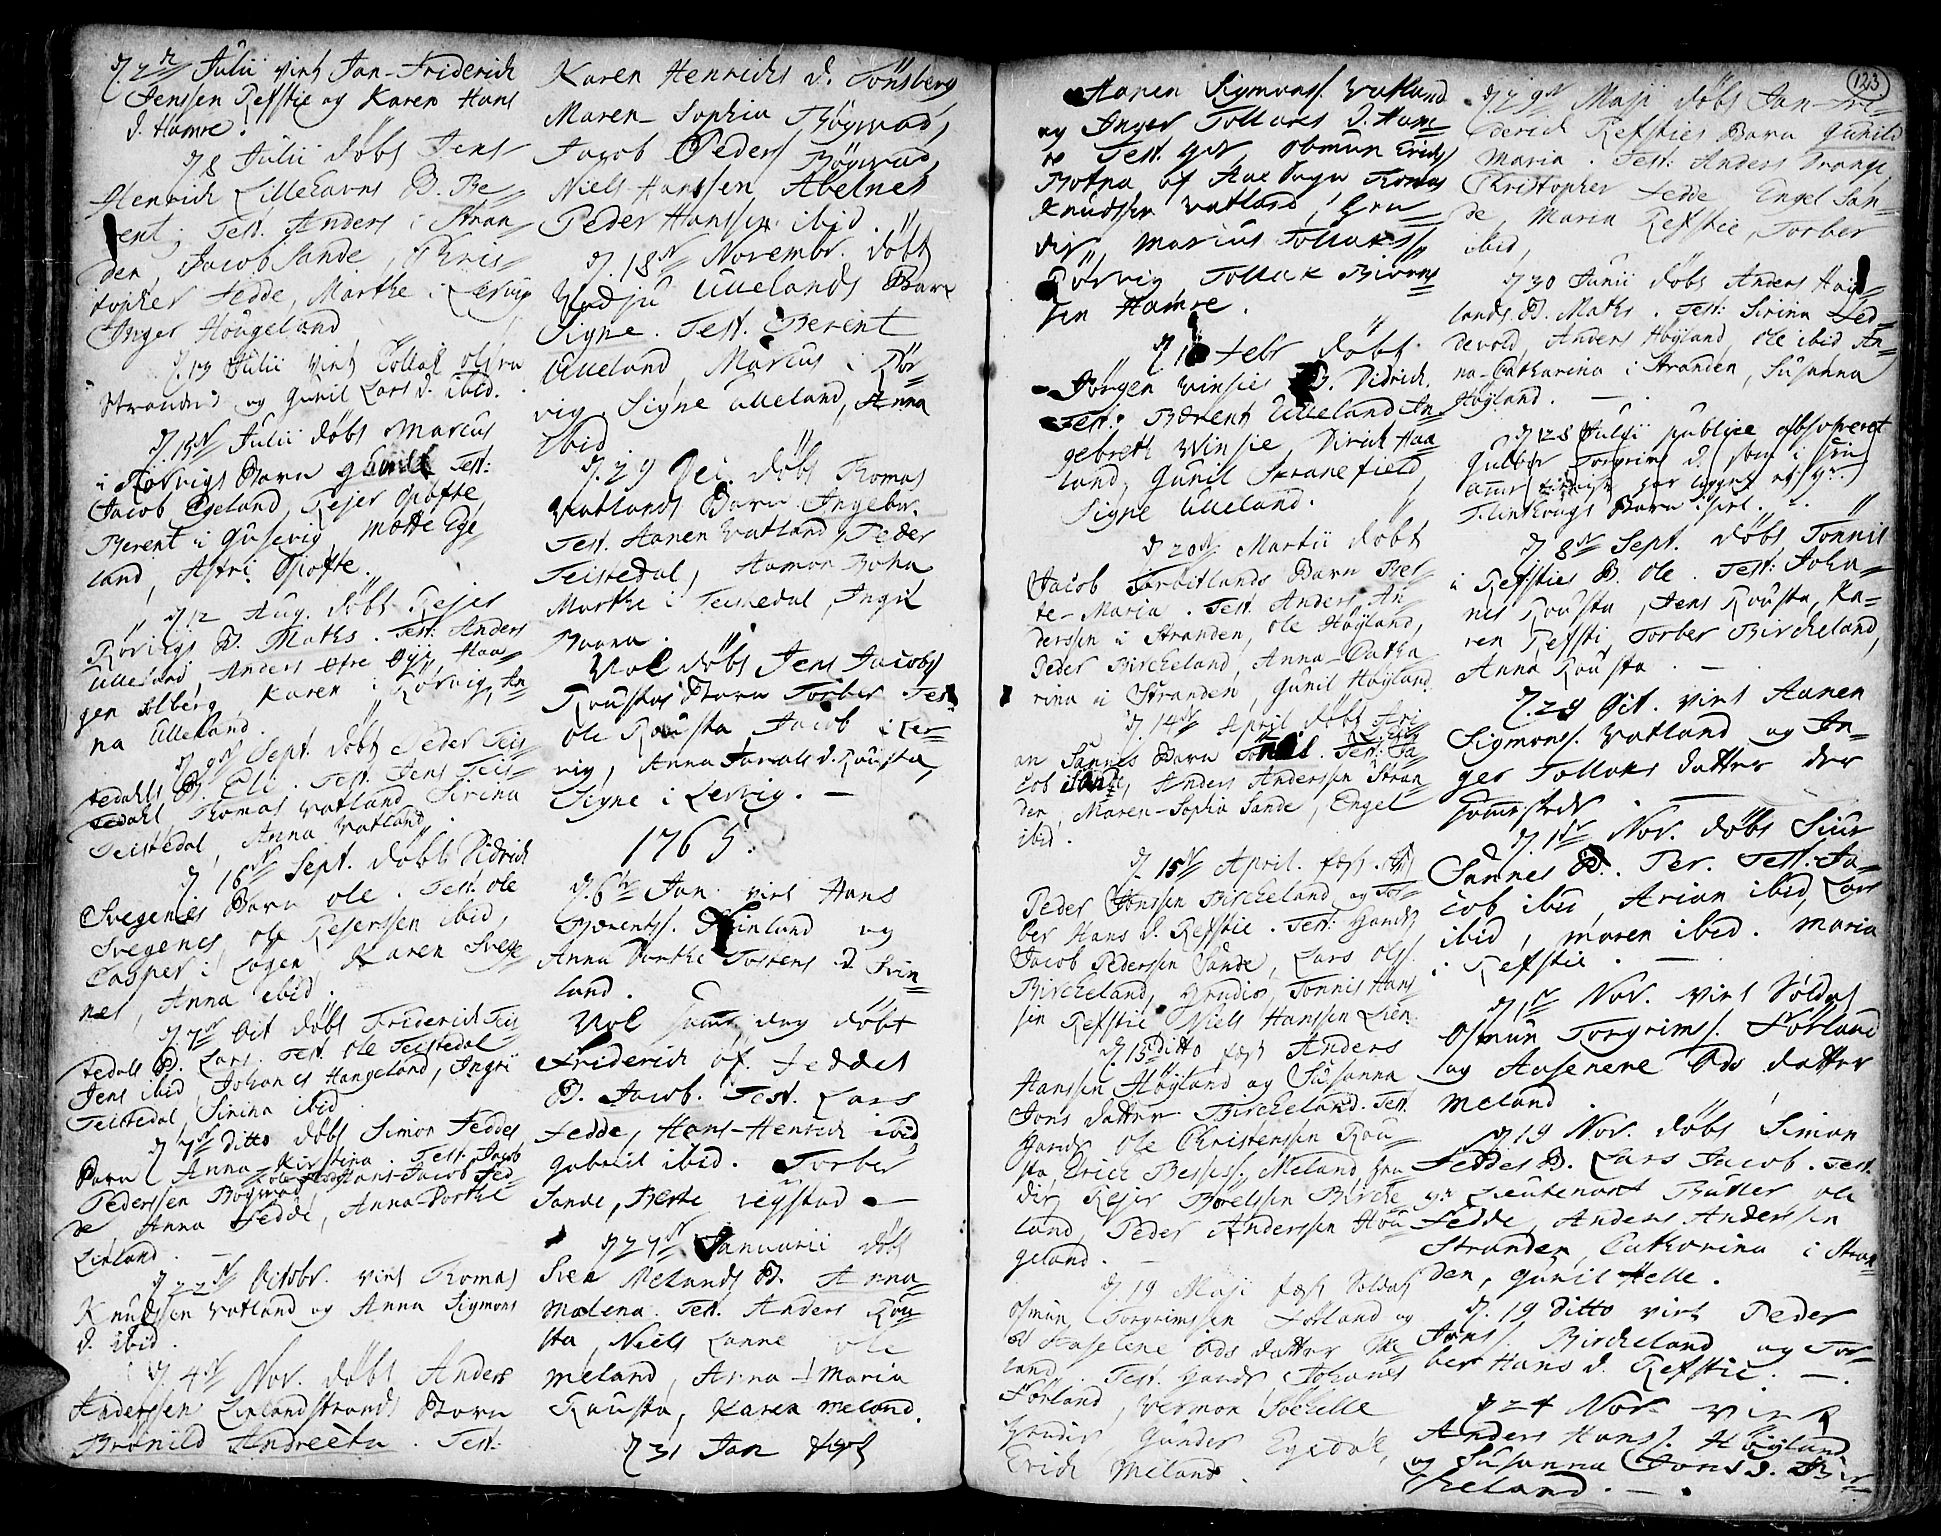 d. 2den Julii viet Jan-Friderich
Jenssen Refstie og Karen Hans
d. Hamre.
d. 8 Julii döbt Jens
Henrich Lillehavns B. Be-
rent, Test. Anders i Stran-
den, Jacob Sande, Chris-
topher Fedde, Marthe i Lervig
Inger Hougeland
d. 13 Julii viet Tollak
Stranden og Gunil Lars d. ibid.
d. 15de Julii döbt Marcus
i Rörvigs Barn Gunild Test:
Jacob Egeland, Rejer Opofte,
Berent i Gusevig, Mette Ege-
land, Astri Opofte.
d. 12 Aug. döbt Rejer
Rörvigs B. Maths. Test: Anders
Ulleland Anders Öfre Öye, Haa-
gen Solberg, Karen i Rörvig, An-
na Ulleland.
d. 9de Sept. döbt Peder Teis-
tedahls B. Eli. Test. Jens Teis-
tedahl, Thomas Vatland, Sirina
Teistedal, Anna Vatland.
d. 16de Sept. döbt Didrich
Svegenes Barn Ole. Test. Ole
Svegenes, Ole Rejerssen ibid,
Casper i Logen, Karen Svege-
nes, Anna ibid.
d. 7de Oct döbt Friderich Teis-
tedals B. Lars. Test. Ole Teistedal
Jens ibid, Johanes Hangeland, Ingri
Teistedal, Sirina ibid
d. 7de ditto döbt Simon Feddes
Barn Anna Kirstina. Test. Jacob
Pederssen Bögwad, Hans-Jacob Fed-
de Anna Fedde, Anna-Dorthe
Linland.
d. 22de Octobr. viet Thomas
Knudssen Vatland og Anna Sigmons
d. ibid.
d. 4de Nov. döbt Anders
Anderssen Linlandstrands Barn
Brönild Andreèta. Test:
Karen Henrichs d. Tönsberg
Maren-Sophia Bögwad,
Jacob Peders Bögwad,
Niels Hanssen Abelnes
Peder Hanssen ibid.
d. 18de Novembr. döbt
Vadju Ullelands Barn
Signe. Test. Berent
Ulleland Marcus i Rör-
vig, Signe Ulleland, Anna
ibid
d. 29 Dec. döbt Thomas
Vatlands Barn Ingebor.
Test. Aanen Vatland, Peder
Teistedal, Aamon Botna
Marthe i Teistedal, Ingri
Botna.
Vol döbt Jens Jacobs
Roustas Barn Torber Test
Ole Rousta, Jacob i Ler-
vig, Anna Jonals d. Rousta,
Signe i Lervig. —
1765.
d. 6te Jan: viet Hans
Berents. Svinland og
Anna Dorthe Torrens d. Svin-
land.
Vol samme dag döbt
Friderich of Feddes
B. Jacob. Test. Lars
Fedde, Hans-Henrich ibid
Gabriel ibid. Torber
Sande, Berte Vegstad —
d. 27de Januarii döbt
Sven Melands B. Anna
Malena. Test. Anders Rou-
sta, Niels Lanne Ole
Meland, Anna-Maria
Rousta, Karen Meland.
d. 31 Jan fæst
Aanen Sigmons. Vatland
og Inger Tollaks d. Ham-
re Test. Osmun Erichs
Botna af Aae Sogn Thomas
Knudssen Vatland, Gru-
dis, Marius Tollaks
Rörvig, Tollak
sen Hamre.
Febr döbt
Jörgen Vinsies B. Didrich.
Test: Berent Ulleland In-
gebreth Winsie Dirich Haa-
land, Gunil Skranefield,
Signe Ulleland.
d. 20de Martii döbt
Jacob Barn Ber-
te-Maria. Test. Anders An-
derssen i Stranden, Ole Höyland,
Peder Bircheland, Anna-Catha
rina i Stranden, Gunil Höyland
d. 14de April döbt Ari-
an Sannes Barn Test: Ja-
cob Anders Anderssen Stran-
den, Maren-Sophia Sande, Engel
ibid.
d. 15de April. fæst
Peder Jonssen Bircheland og Tor-
ber Hans d. Refstie. Test: Hands
Jacob Pederssen Sande, Lars Ols.
Bircheland, Grudis, Tonnis Hans-
sen Refstie, Niels Hanssen Lien.
d. 15 ditto fæst Anders
Hanssen Höyland og Susanna
Jons datter Bircheland. Test
Hands Ole Christenssen Rou-
sta, Erich Meland Gru-
dis, Rejer Bircke-
land, Peder Anderssen Hou-
geland. —
d. 19 Maji fæst Soldat
Osmun Torgrimssen Förland og
Aaselene Ods datter Me-
land. Test. Hands Johanes
Förland, Vermon
Grudis, Gunder
Erich Meland.
123
d. 29de Maji döbt Jan-Fri-
derich Refsties Barn Gunild
Maria. Test: Anders Drange,
Christopher Fedde Engel San-
de, Maria Refstie, Torber
ibid,
d. 30 Junii döbt Anders Höy-
lands B. Maths. Test: Sirina
Anders Höyland, Ole ibid An-
na-Catharina i Stranden, Susanna
Höyland. —
d. 28 Julii publice absolveret
Torgrims d.
Barn
d. 8de Sept. döbt Tönnis
i Refsties B. Ole. Test: Joha-
nes Rousta, Jens Rousta, Ka-
ren Refsti, Torber Bircheland,
Anna Rousta. —
d. 29 Oct. viet Aanen
Sigmons. Vatland og In-
ger Tollaks datter der
d. 1ste Nov. döbt Siur
Sannes B. Per. Test. Ja-
cob ibid, Arian ibid, Lars
ibid, Maren ibid. Maria
i Refstie. —
d. 1ste Nov. viet Soldat
Osmun Torgrims. Förland
og Aasenene Ods datter
Meland.
d. 19 Nov. döbt Simon
Feddes B. Lars Jacob. Test.
Hr Lieutenant Butler Ole
Fedde, Anders Anderssen
Stranden, Catharina i Stran-
den, Gunil Helle.
d. 19 ditto viet Peder
Jons. Bircheland og Tor-
ber Hans d. Refstie. —
d. 24 Nov. viet
Anders Hans. Höyland
og Susanna Jons d. Bir-
cheland. —